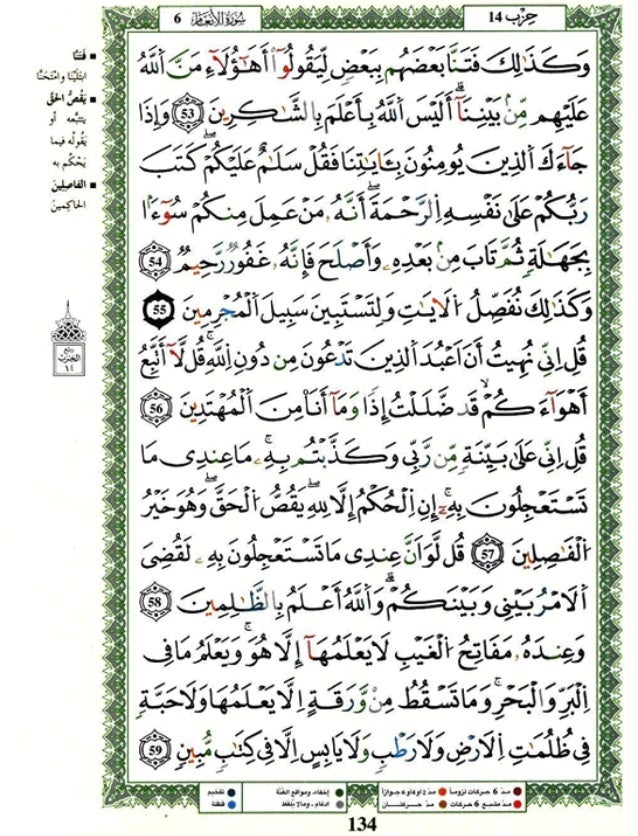 حِزْب 14
سُورَةُ الأَنْعَامِ 6
وَكَذَٰلِكَ فَتَنَّا بَعْضَهُم بِبَعْضٍ لِّيَقُولُوٓاْ أَهَٰٓؤُلَآءِ مَنَّ اَ۬للَّهُ
عَلَيْهِم مِّنۢ بَيْنِنَآ أَلَيْسَ اَ۬للَّهُ بِأَعْلَمَ بِالشَّٰكِرِينَ 53 وَإِذَا
جَآءَكَ اَ۬لذِينَ يُومِنُونَ بِـَٔايَٰتِنَا فَقُلْ سَلَٰمٌ عَلَيْكُمْ كَتَبَ
رَبُّكُمْ عَلَىٰ نَفْسِهِ اِ۬لرَّحْمَةَ أَنَّهُۥ مَنْ عَمِلَ مِنكُمْ سُوٓءَاۢ
بِجَهَٰلَةٖ ثُمَّ تَابَ مِنۢ بَعْدِهِۦ وَأَصْلَحَ فَإِنَّهُۥ غَفُورٞ رَّحِيمٞ 54
وَكَذَٰلِكَ نُفَصِّلُ اُ۬لَايَٰتِ وَلِتَسْتَبِينَ سَبِيلَ اَ۬لْمُجْرِمِينَ 55
قُلِ اِنِّي نُهِيتُ أَنَ اَعْبُدَ اَ۬لذِينَ تَدْعُونَ مِن دُونِ اِ۬للَّهِ قُل لَّآ أَتَّبِعُ
أَهْوَآءَكُمْ قَد ضَّلَلْتُ إِذٗا وَمَآ أَنَا مِنَ اَ۬لْمُهْتَدِينَ 56
قُلِ اِنِّي عَلَىٰ بَيِّنَةٖ مِّن رَّبِّي وَكَذَّبْتُم بِهِۦ مَا عِندِي مَا
تَسْتَعْجِلُونَ بِهِۦٓ إِنِ اِ۬لْحُكْمُ إِلَّا لِلهِ يَقُصُّ اُ۬لْحَقَّ وَهُوَ خَيْرُ
اُ۬لْفَٰصِلِينَ 57 قُل لَّوَ اَنَّ عِندِي مَا تَسْتَعْجِلُونَ بِهِۦ لَقُضِيَ
اَ۬لَامْرُ بَيْنِي وَبَيْنَكُمْ وَاللَّهُ أَعْلَمُ بِالظَّٰلِمِينَ 58
وَعِندَهُۥ مَفَاتِحُ اُ۬لْغَيْبِ لَا يَعْلَمُهَآ إِلَّا هُوَ وَيَعْلَمُ مَا فِي
اِ۬لْبَرِّ وَالْبَحْرِ وَمَا تَسْقُطُ مِنْ وَّرَقَةٍ اِلَّا يَعْلَمُهَا وَلَا حَبَّةٖ
فِي ظُلُمَٰتِ اِ۬لَارْضِ وَلَا رَطْبٖ وَلَا يَابِسٍ اِلَّا فِي كِتَٰبٖ مُّبِينٖ 59
■ فَتَنَّا
ابتَلَيْنا وامْتَحَنَّا
■ يَقُصُّ الحَقَّ
يتبعُه أو
يقوله فيما
يَحْكُم به
■ الفاصِلِينَ
الحَاكِمينَ
ربع
الحزب
١٤
مدّ 6 حركات لزوماً
مدّ 2 أو 4 أو 6 جوازاً
مدّ مشبع 6 حركات
مدّ حركتان
إخفاء، ومواقع الغُنَّة
ادغام، وما لا يُلفَظ
تفخيم
قلقلة
134